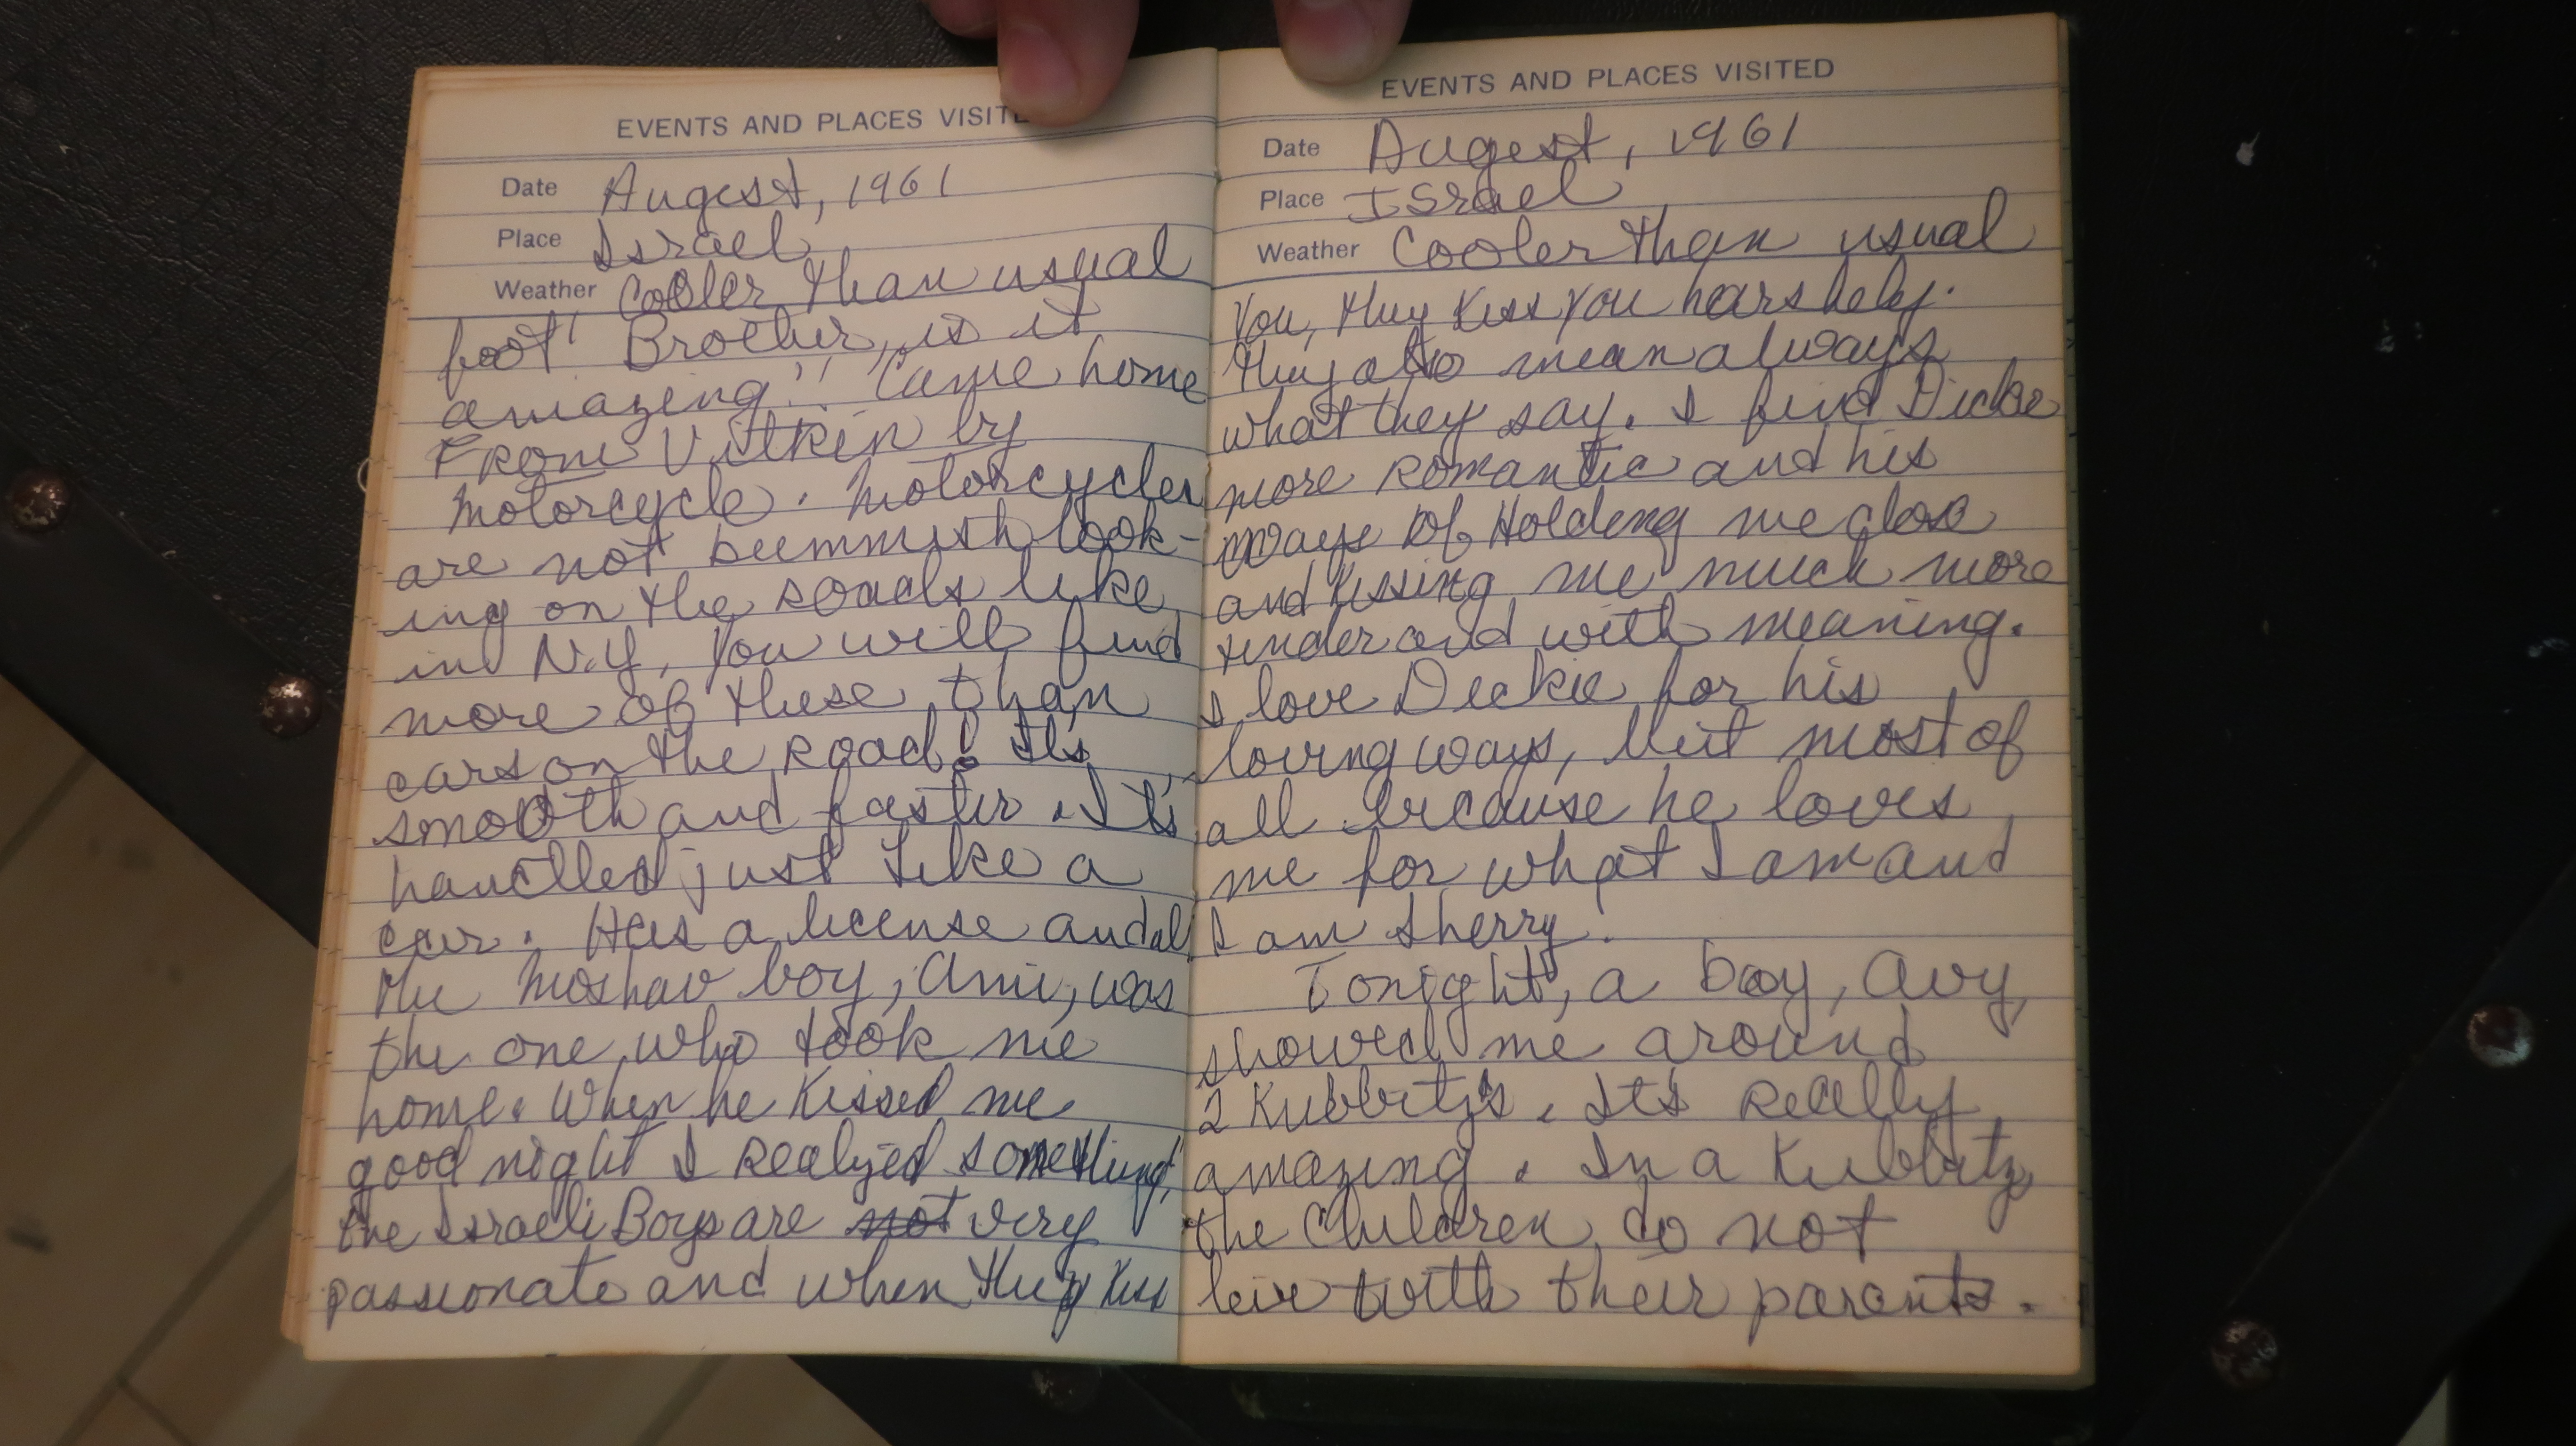 EVENTS AND PLACES VISITE
Date August, 1961
Place Israel
Weather Cooler than usual
foot! Brother, is it
amazing!! Came home
From Vitkin by
motorcycle. Motorcycles
are not bummish look-
ing on the roads like
in N.Y. You will find
more of these than
cars on the road! It's
smooth and faster. It's
handled just like a
car. Has a license and all
The Moshav boy, Ami, was
the one who took me
home. When he kissed me
good night I realized something,
the Israeli Boys are not very
passionate and when they kiss
EVENTS AND PLACES VISITED
Date Augest, 1961
Place Israel
Weather Cooler than usual
you, they kiss you harshely.
they also mean always
what they say. I find Dickie
more romantic and his
ways of Holding me close
and kissing me much more
tender and with meaning.
I love Dickie for his
loving ways, but most of
all because he loves
me for what I am and
I am Sherry.
Tonight, a boy, Avy,
showed me around
2 Kubbitz's. It's really
amazing. In a Kubbitz
the Children do not
live with their parents.